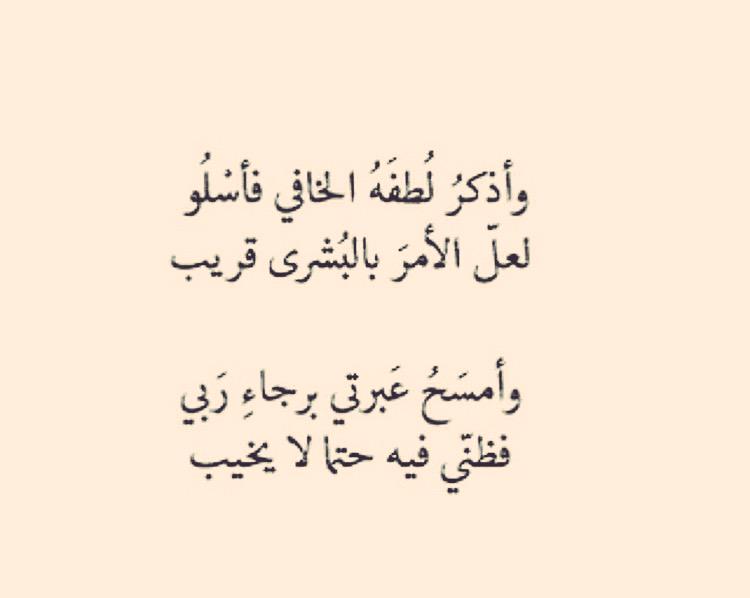 وأذكرُ لُطفَهُ الخافي فأسْلُو
لعلّ الأمرَ بالبُشرى قريب
وأمسَحُ عَبرتي برجاءِ رَبي
فظنّي فيه حتما لا يخيب